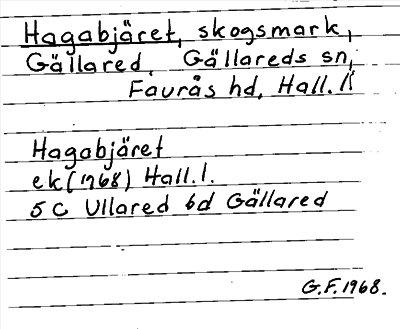 Hagabjäret, skogsmark,
Gällared, Gällareds sn,
Faurås hd, Hall. l.
Hagabjäret
ek (1968) Hall. l.
5 C Ullared 6d Gällared
G.F. 1968.